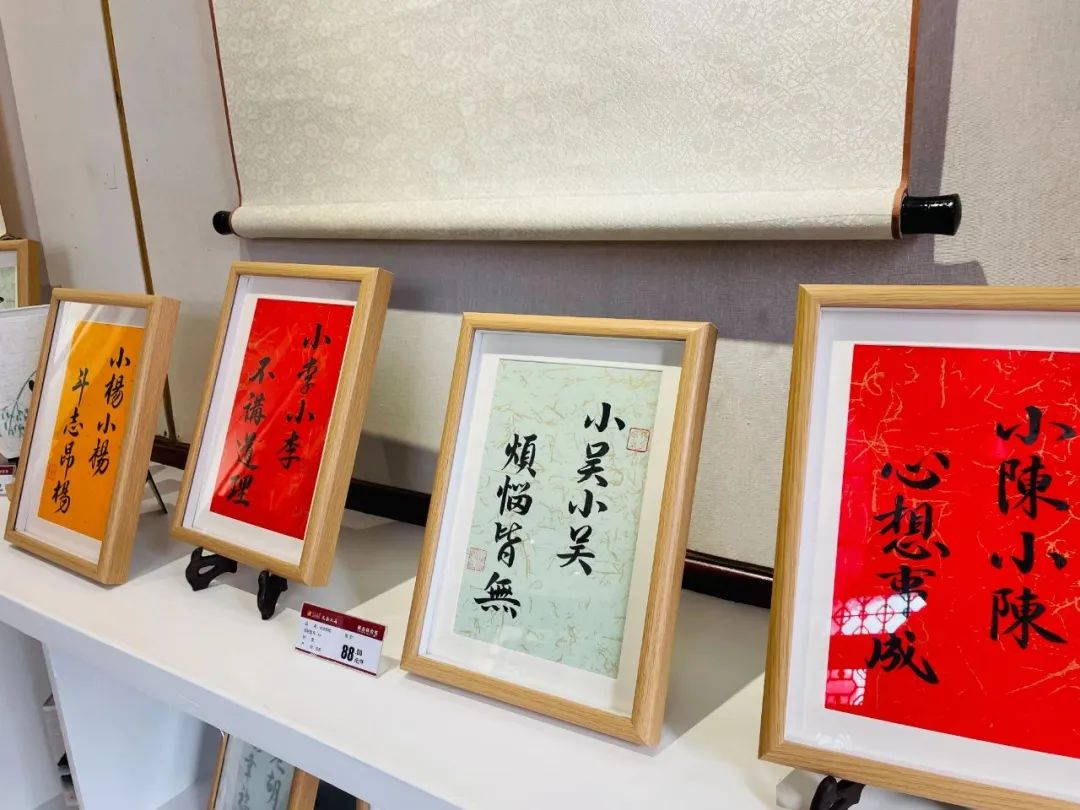 小楊小楊
斗志昂楊
小李小李
不講道理
小吴小吴
煩惱皆無
小陳小陳
心想事成
88.00